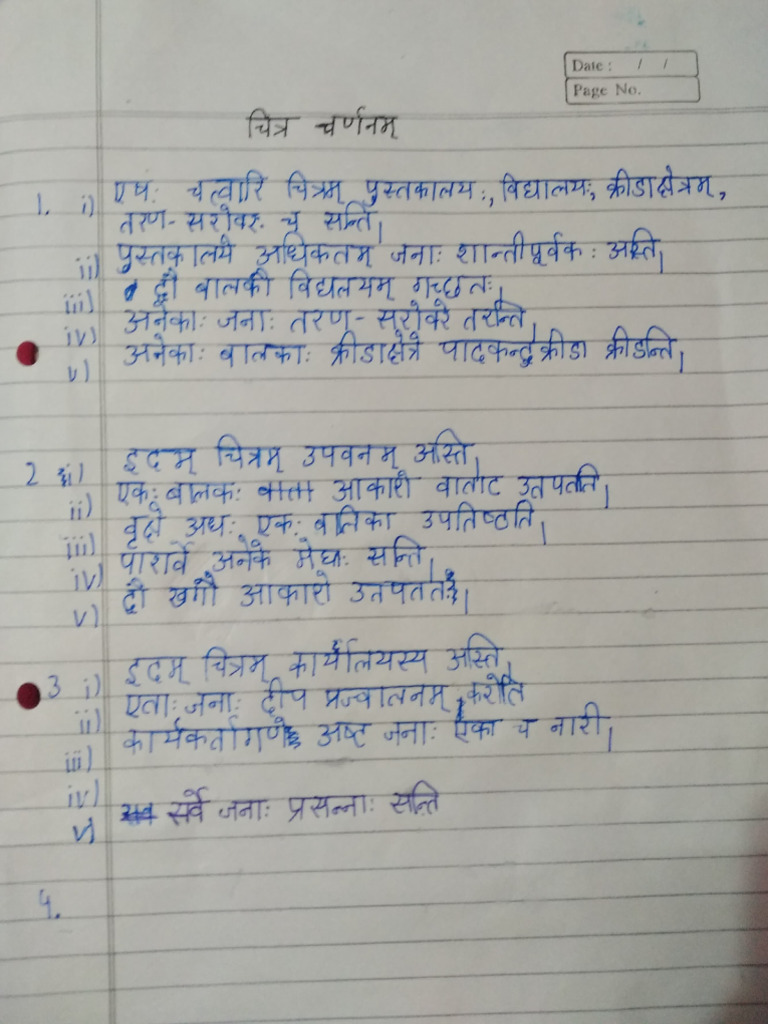 Date : / /
Page No.
चित्र चर्णनम्
1. i) एषः चत्वारि चित्रम् पुस्तकालयः, विद्यालयः, क्रीडाक्षेत्रम्,
तरण-सरोवरः च सन्ति।
ii) पुस्तकालये अधिकतम् जनाः शान्तीपूर्वकः अस्ति।
iii) द्वौ बालकौ विद्यलयम् गच्छतः।
iv) अनेकाः जनाः तरण-सरोवरे तरन्ति।
v) अनेकाः बालकाः क्रीडाक्षेत्रे पादकन्दुक्रीडा क्रीडन्ति।
2 i) इदम् चित्रम् उपवनम् अस्ति।
ii) एकः बालकः आकाशे वाताट उतपतति।
iii) वृक्षे अधः एकः बालिका उपतिष्ठति।
iv) पारार्वे अनेके मेघाः सन्ति।
v) द्वौ खगौ आकाशे उतपततः।
3 i) इदम् चित्रम् कार्यालयस्य अस्ति।
ii) एताः जनाः दीप प्रज्वालनम् करोति
iii) कार्यकर्तागणे अष्ट जनाः एका च नारी।
iv)
v) सर्वे जनाः प्रसन्नाः सन्ति
4.